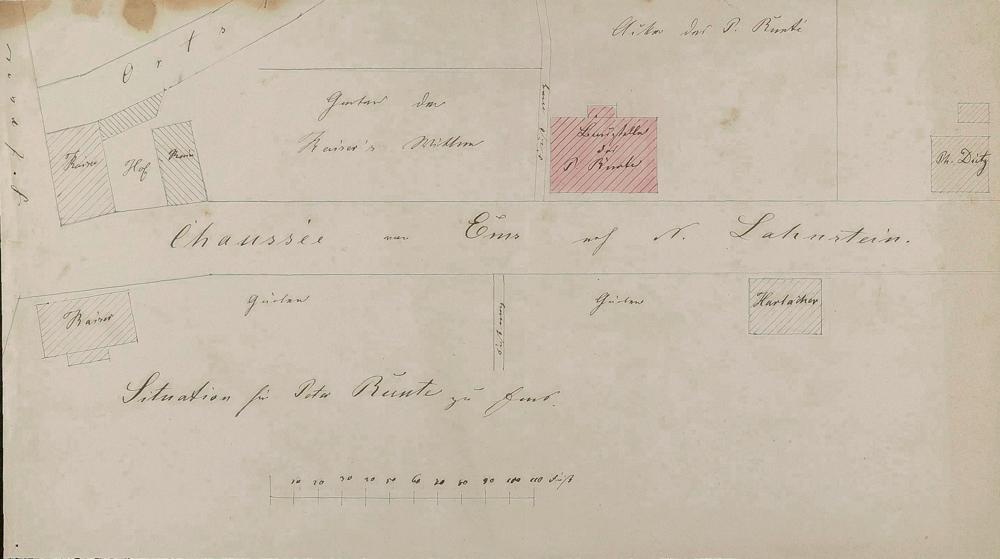 Orts
Acker des P. Runte
Garten der
Kaiser's Wittwe
Baustelle
des
P. Runte
Kaiser
Hof
Ph. Dütz
Chaussée von Ems nach N. Lahnstein.
Kaiser
Garten
Garten
Harbacher
Situation für Peter Runte zu Ems.
10 20 30 40 50 60 70 80 90 100 110 Fuß